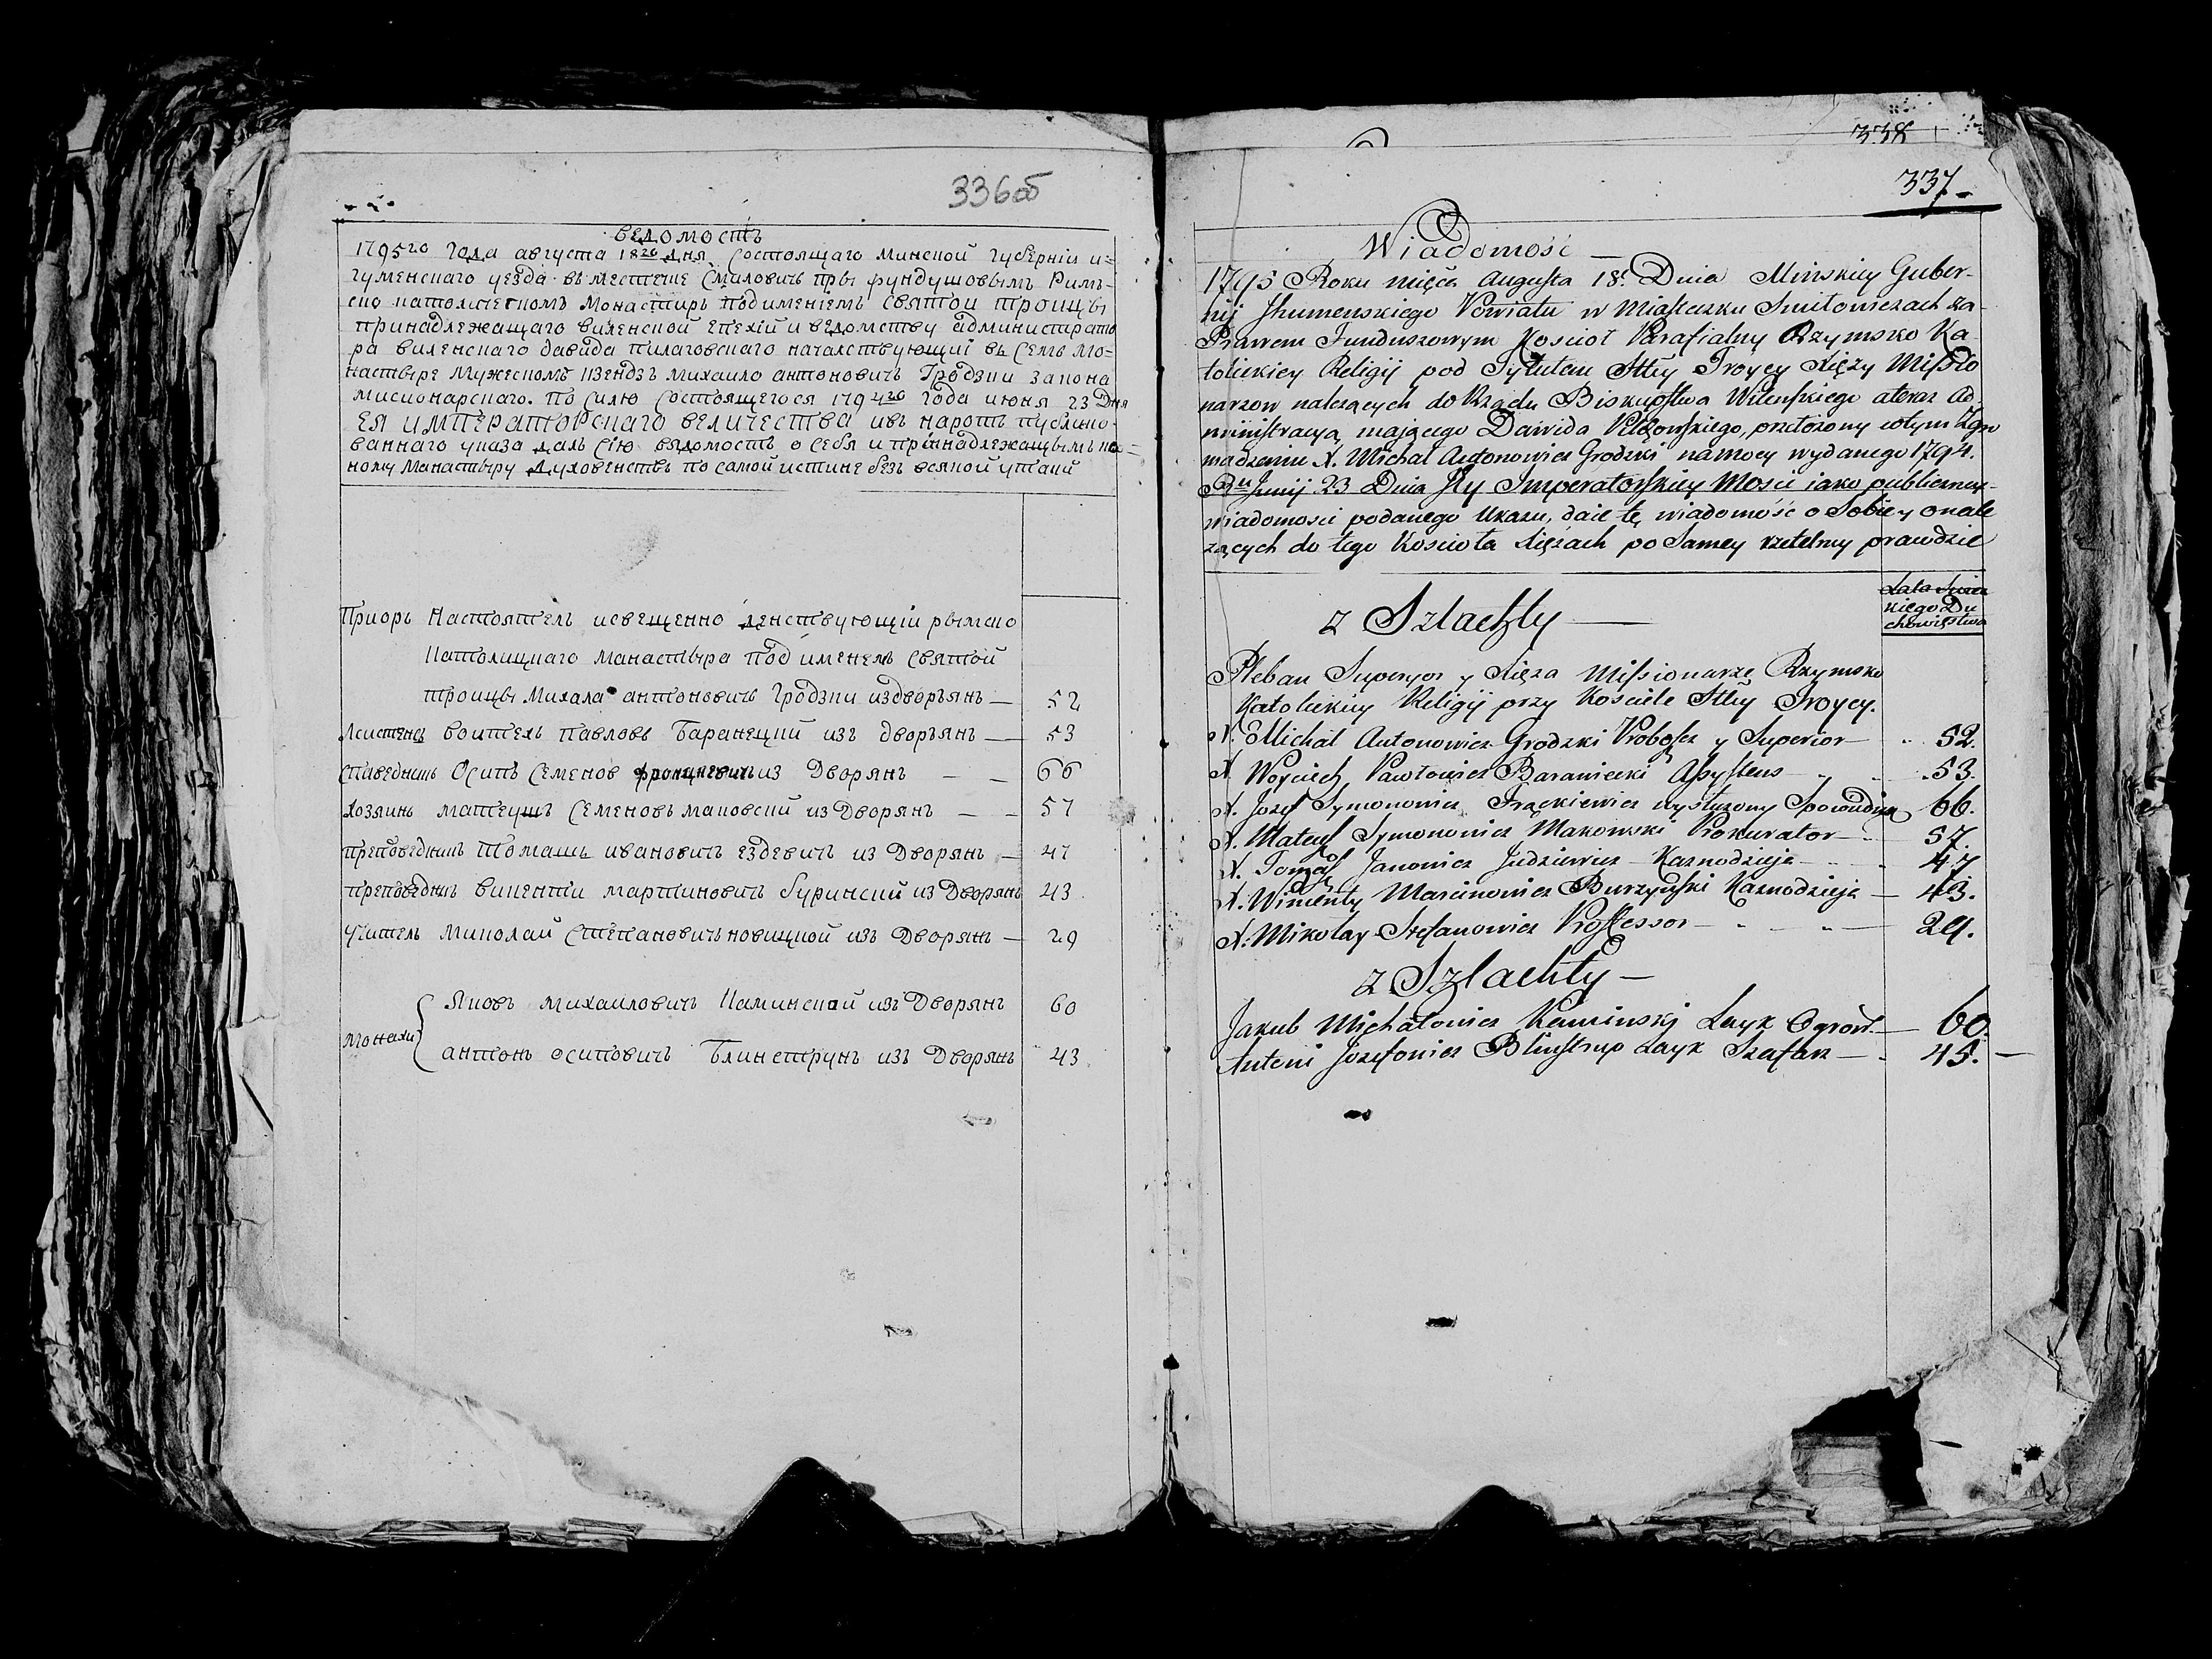 336об
ведомость
1795го года августа 18го дня состоящаго минской губернии и=
гуменскаго уезда въ местечке Смиловичъ при фундушовымъ Римъ-
ско католическомъ монастиръ под именіемъ святой троицы
принадлежащаго виленской епехіи и ведомству администрато
ра виленскаго давида пилаговскаго началствующій въ семъ мо=
настыре мужескомъ ксендзъ михаило антоновичъ Гродзки закона
мисионарскаго. По силю состоящегося 1794го года июня 23 Дня
ЕЯ ИМПЕРАТОРСКАГО ВЕЛИЧЕСТВА ивъ народъ публико-
ваннаго указа далъ сію ведомость о себя и принадлежащымъ ко=
ному манастыру духовенствъ по самой истине безъ всякой утайи
Приоръ Настоятель исвещенно действующій рымско
Католицкаго манастыра под именемъ святой
троицы Михала антоновичъ Гродзки издворъянъ — 52
Асистенсъ воитехъ павловъ Баранецкий изъ дворъянъ — 53
Спаведникъ Осипъ Семенов Фронцкевичъ из Дворянъ — — 66
Хозяинъ матеушъ Семеновъ маковский из Дворянъ — — 57
преповедникъ томашъ ивановичъ ездевичъ из Дворянъ — 47
преповедникъ викентіи мартиновичъ буринский из Дворянъ 43
Учитель миколай Степановичъ новицкой изъ Дворянъ — 29
монахи
Яковъ михаиловичъ Каминской изъ Дворянъ 60
антонъ осиповичъ Блинструпъ изъ Дворянъ 43
338
337
Wiadomość —
1795 Roku mięca Augusta 18. Dnia Minskiey Guber-
nij Jhumenskiego Powiatu w Miasteczku Smiłowiczach za-
Prawem Funduszowym Kosciół Parafialny Rzymsko Ka-
tolickiey Religij pod Tytułem Stey Troycy xięży Missio
narzow należących do Rządu Biskupstwa Wilenskiego ateraz ad-
ministracyą maiącego Dawida Pilchowskiego, przełożony wtym Zgro
madzeniu X. Michał Antonowicz Grodzki na mocy wydanego 1794.
Ru Junij 23 Dnia Jey Imperatorskiey Mosci iako publiczney-
wiadomosci podanego Ukazu, daie tę wiadomość o Sobie y onale
żących do tego Kościoła xiężach po Samey rzetelney prawdzie
z Szlachty —
Lata Swiec
kiego Du
chowięstwa
Pleban Superyor y xięża Missionarze Rzymsko
Katolickiey Religij przy Kościele Stey Troycy.
X. Michał Antonowicz Grodzki Probosz y Superior — 52.
X. Woyciech Pawłowicz Baraniecki Assystens 53.
X. Jozef Symonowicz Frąckiewicz wysłużony Spowiednik 66.
X. Mateusz Symonowicz Makowski Prokurator — 57.
X. Tomasz Janowicz Judziewicz — Kaznodzieja — 47
X. Wincenty Marcinowicz Burzyński Kaznodzieja — 43.
X. Mikołay Stefanowicz Professor — 29.
z Szlachty —
Jakub Michałowicz Kaminskj Layk Ogrod. — 60.
Antoni Jozefowicz Blinstrup Layk Szafarz — 45. —